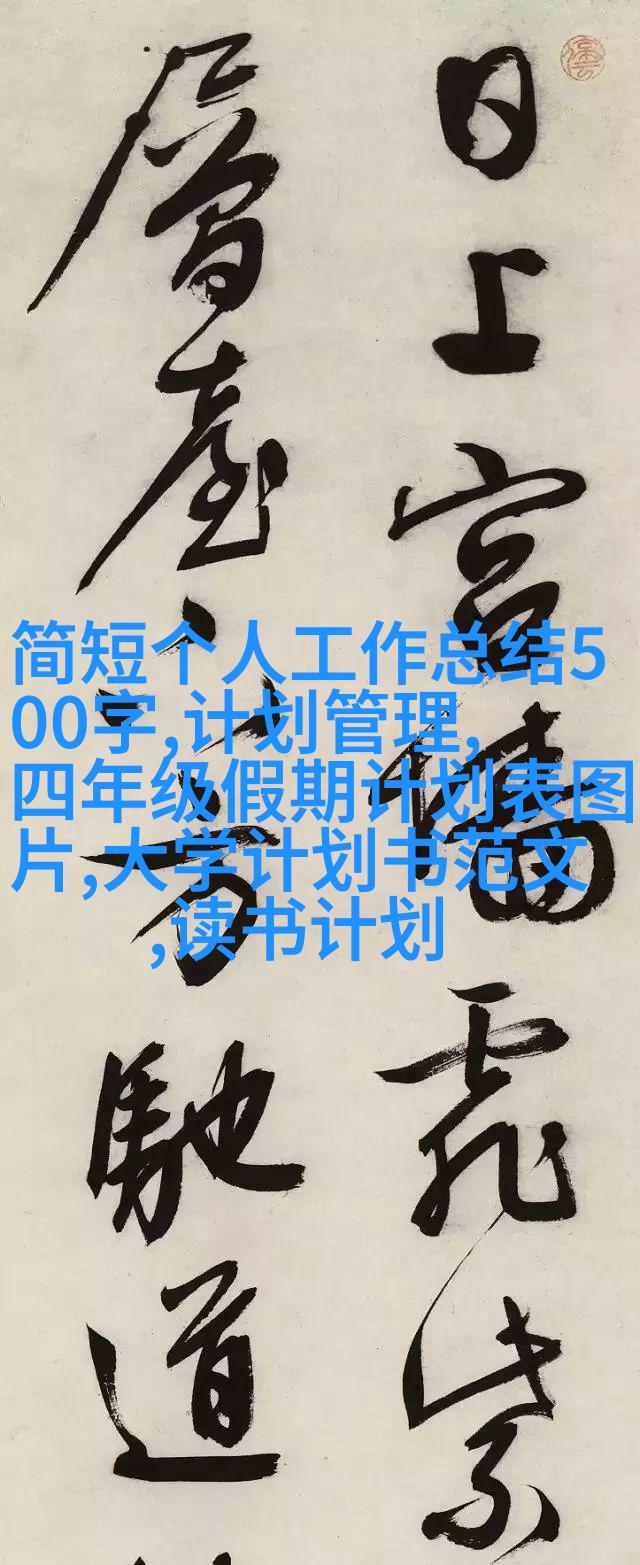 日上宫墙飞紫
层台、芳驰道
简短个人工作总结5
00字,计划管理,
四年级假期计划表图
片,大学计划书范文
,读书计划